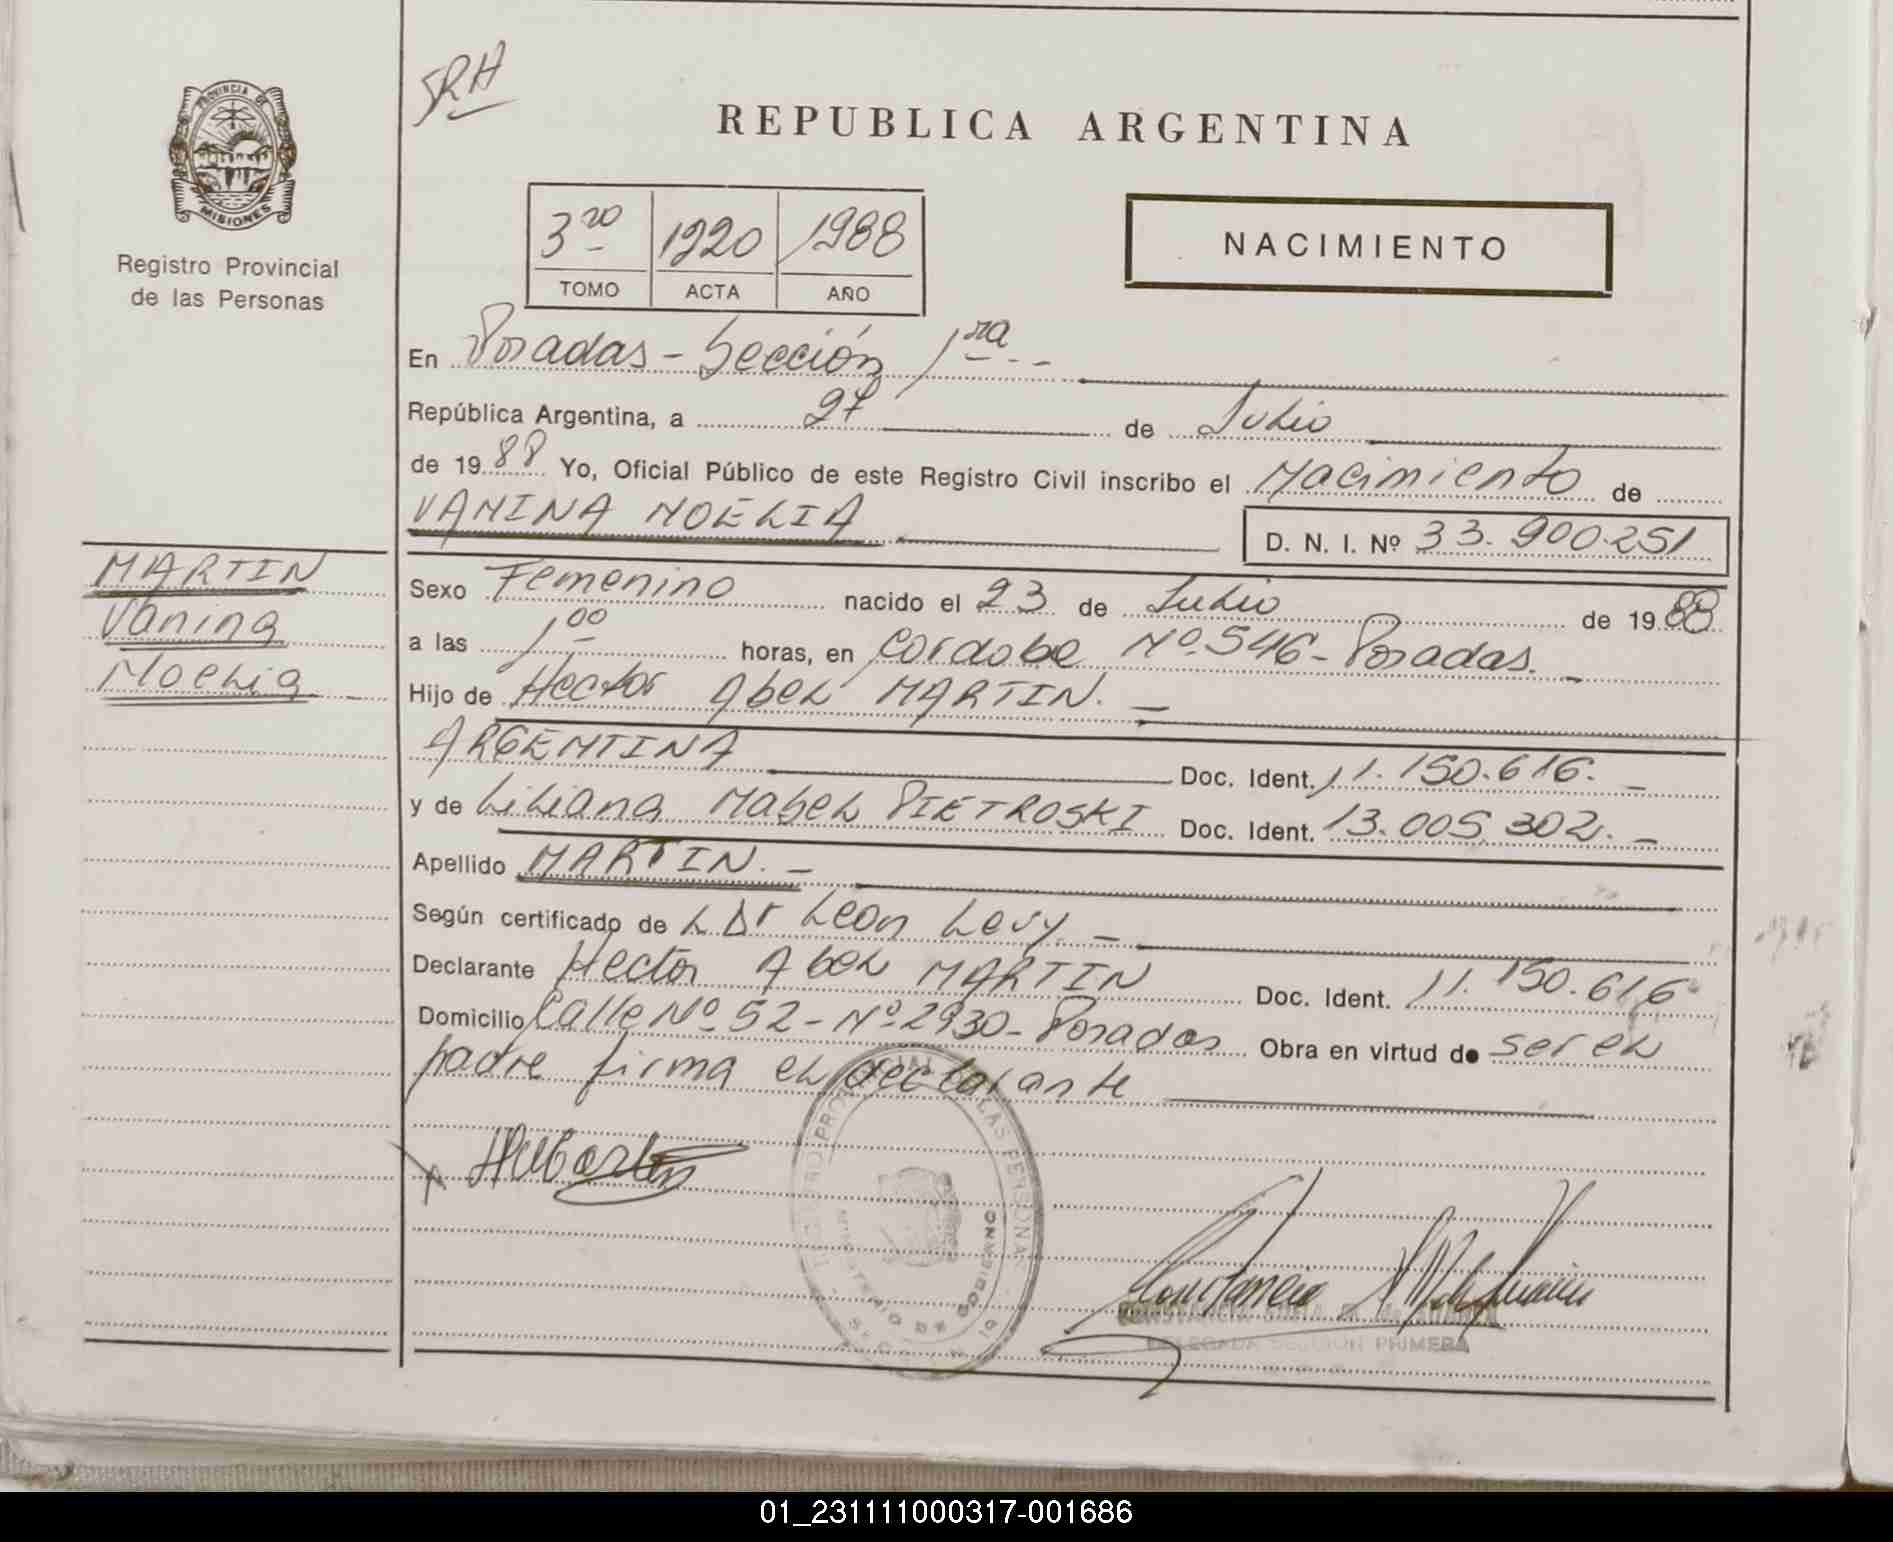 PROVINCIA DE
MISIONES
Registro Provincial
de las Personas
REPUBLICA ARGENTINA
3ro 1920 1988
TOMO ACTA AÑO
NACIMIENTO
En Posadas - Sección 1ra - -
República Argentina, a 27 de Julio
de 1988 Yo, Oficial Público de este Registro Civil inscribo el Nacimiento de
VANINA NOELIA
D. N. I. Nº 33.900.251
MARTIN
Vanina
Noelia
Sexo Femenino nacido el 23 de Julio de 1988
a las 1 00 horas, en Cordoba Nº 546 - Posadas. -
Hijo de Hector Abel MARTIN. -
ARGENTINA Doc. Ident. 11.150.616. -
y de Liliana Mabel PIETROSKI Doc. Ident. 13.005.302. -
Apellido MARTIN. -
Según certificado de L Dr Leon Levy -
Declarante Hector Abel MARTIN Doc. Ident. 11.150.616
Domicilio Calle Nº 52 - Nº 2930 - Posadas Obra en virtud de ser el
padre firma el declarante
MINISTERIO DE GOBIERNO
DELEGADA SECCION PRIMERA
01_231111000317-001686